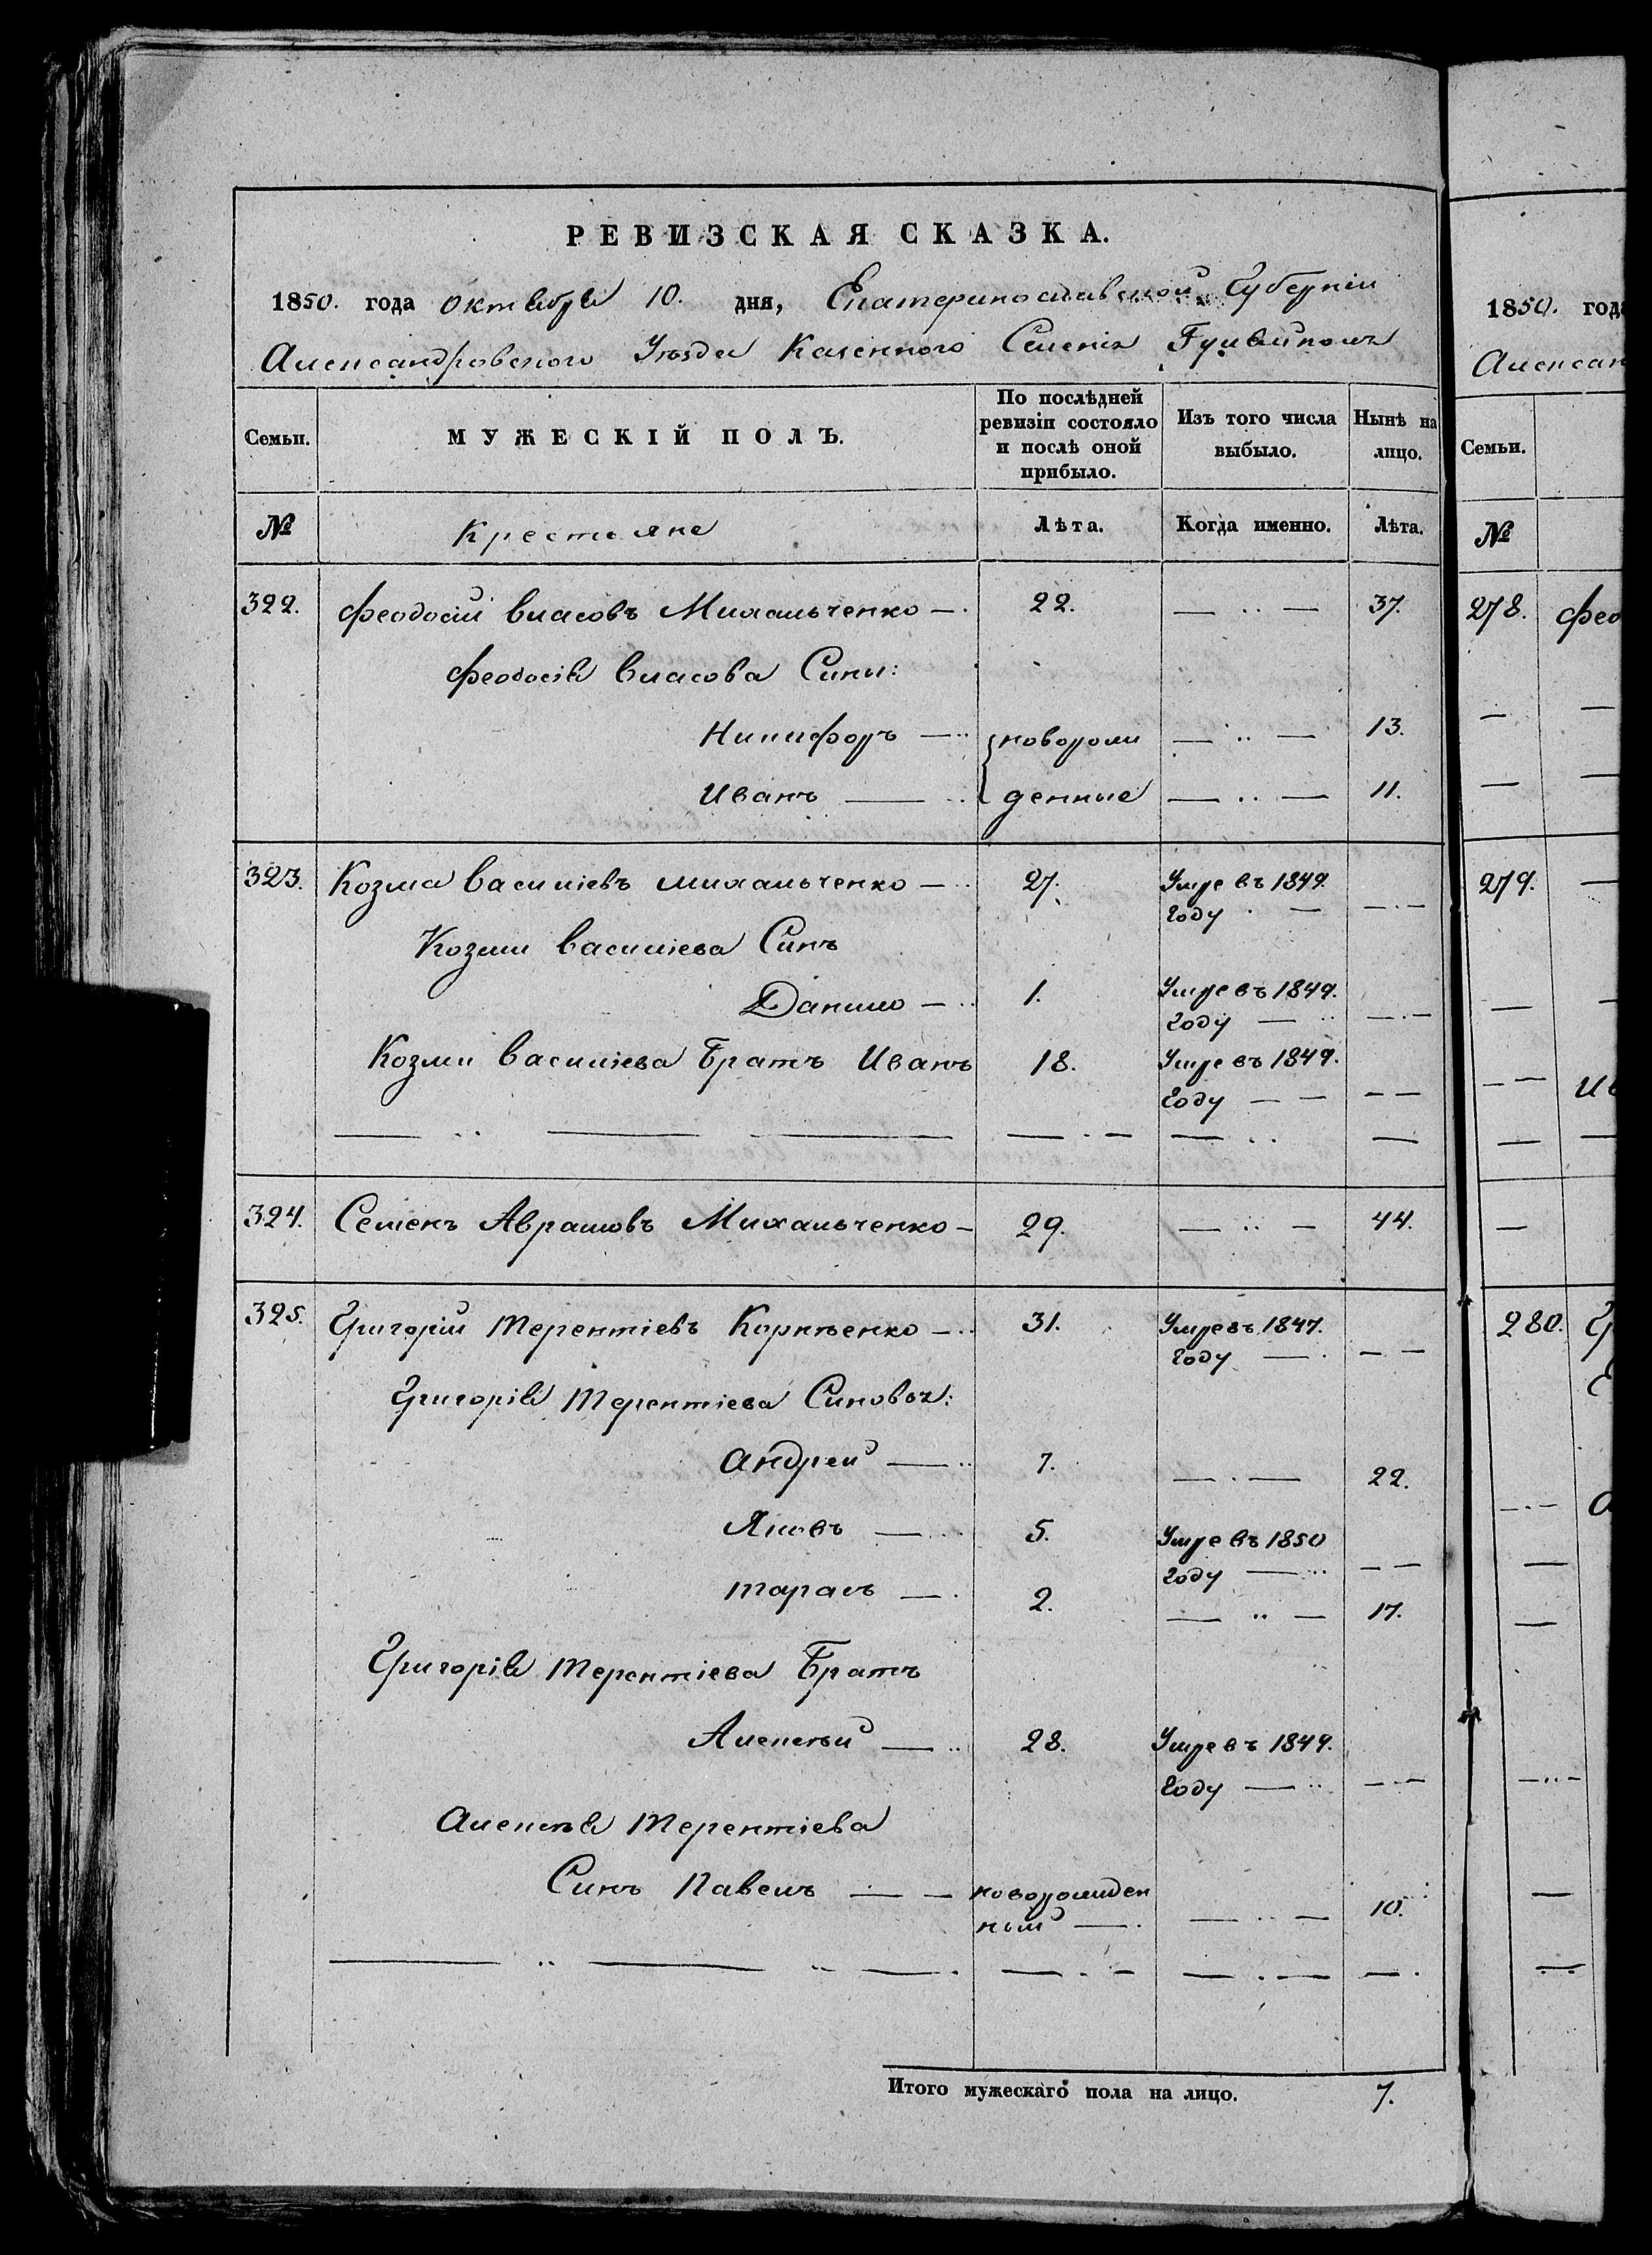 РЕВИЗСКАЯ СКАЗКА.
1850. года октября 10. дня, Екатеринославской Губерніи
Александровского Уѣзда Казенного Селенія Гуляйполя
Семьи. МУЖЕСКІЙ ПОЛЪ. По послѣдней ревизіи состояло и послѣ оной прибыло. Изъ того числа выбыло. Нынѣ на лицо.
№ Крестьяне Лѣта. Когда именно. Лѣта.
322. Феодосій Власовъ Михальченко — 22. — 37.
Феодосія Власова Сини:
Никифоръ — новорож — 13.
Иванъ — денные — 11.
323. Козма Василіевъ Михальченко — 27. Умре въ 1849.
году —
Козми Василіева Синъ
Данило — 1. Умре въ 1849.
году —
Козми Василіева Братъ Иванъ 18. Умре въ 1849.
году —
324. Семенъ Аврамовъ Михальченко — 29. — 44.
325. Григорій Терентіевъ Корнѣенко — 31. Умре въ 1847.
году —
Григорія Терентіева Синовья:
Андрей — 7. — 22.
Яковъ — 5. Умре въ 1850
году —
Тарасъ — 2. — 17.
Григорія Терентіева Братъ
Алексѣй — 28. Умре въ 1849.
году —
Алексѣя Терентіева
Синъ Павелъ — новорожден
ный — 10.
Итого мужескаго пола на лицо. 7.
1850. года
Алексан
Семьи.
№
278. Фео
279.
Ив
280. Гр